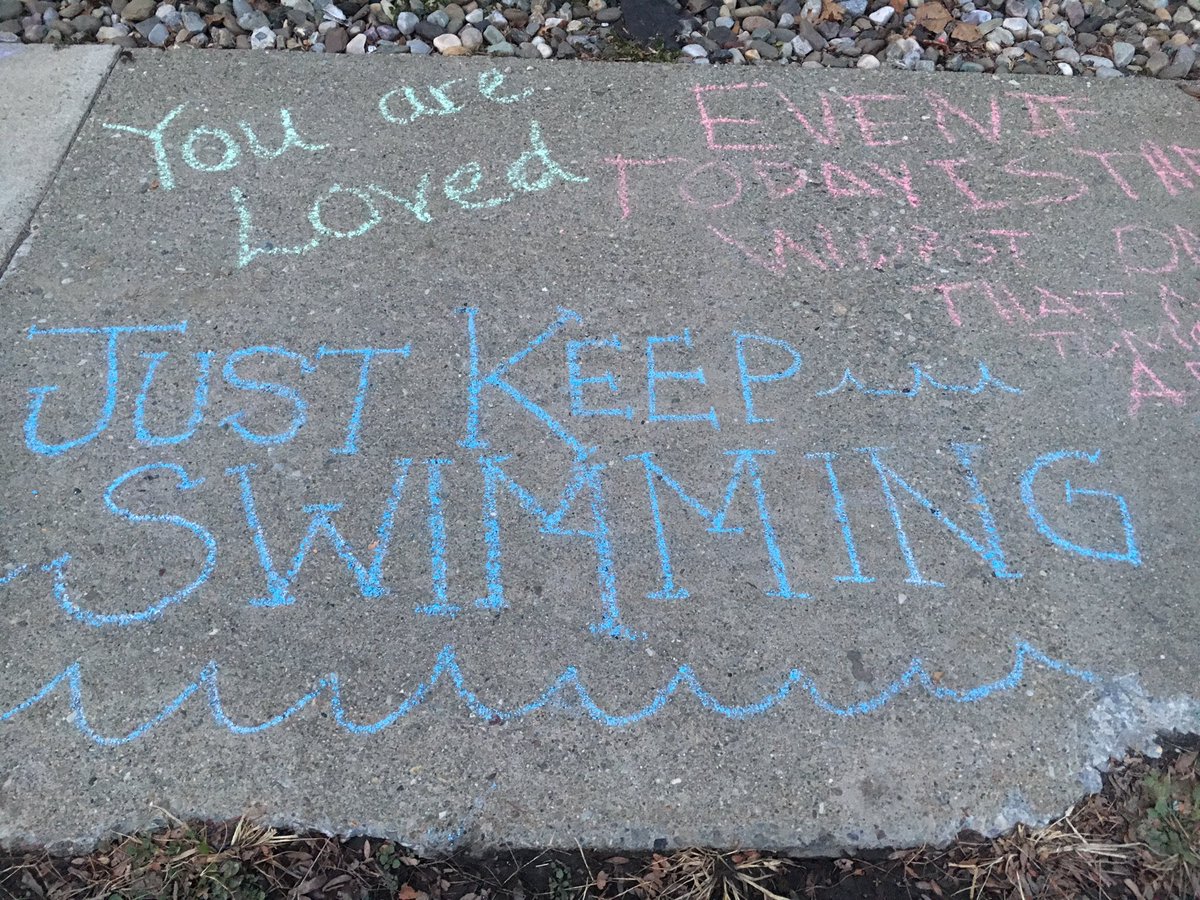 You are
Loved
EVEN IF
TODAY IS
WORST
THAT
JUST KEEP
SWIMMING